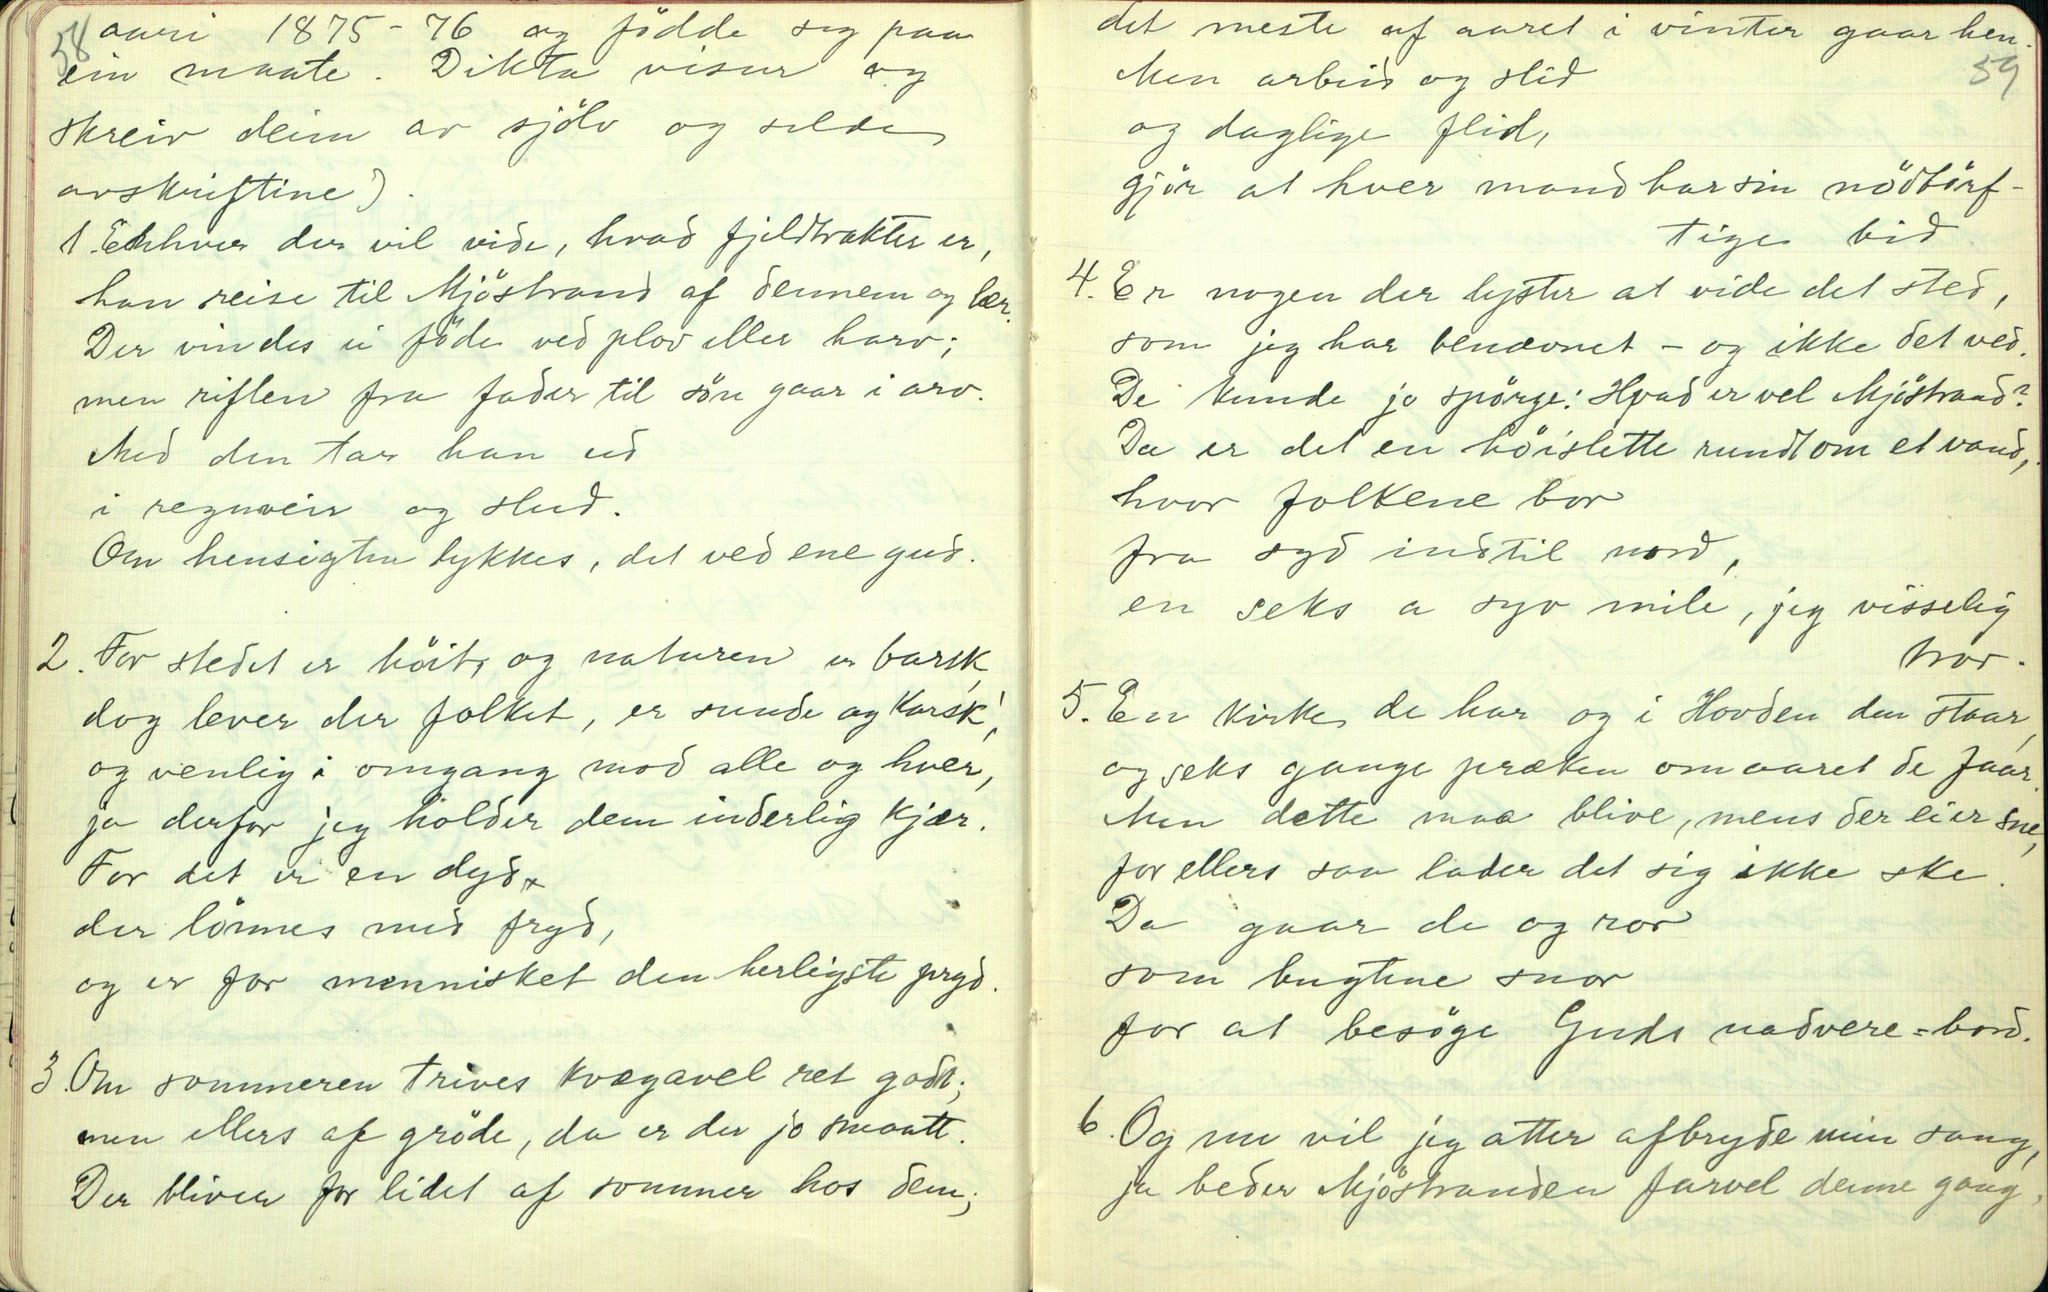 58
aari 1875-76 og födde seg paa
ein maate. Dikta visur og
skreiv deim av sjölv og selde
avskriftine).
1. Enhver der vil vide, hvad fjeldtrakter er,
han reise til Mjöstrand af dennem og lær.
Der vindes ei föde ved plov eller harv;
men riflen fra fader til sön gaar i arv.
Med den tar han ud
i regnveir og slud.
Om hensigten lykkes, det ved ene gud.
2. For stedet er höit, og naturen er barsk,
dog lever der folket, er sunde og karsk',
og venlig i omgang mod alle og hver,
ja derfor jeg holder dem inderlig kjær.
For det er en dyd,
der lönnes med fryd,
og er for mennisket den herligste pryd.
3. Om sommeren trives kvægavel ret godt;
men ellers af gröde, da er der jo smaatt.
Der bliver for lidet af sommer hos dem;
59
det meste af aaret i vinter gaar hen.
Men arbeid og slid
og daglige flid,
gjör at hver mand har sin nödtörf-
tige bid
4. Er nogen der lyster at vide det sted,
som jeg har benævnet - og ikke det ved.
De kunde jo spörge: Hvad er vel Mjöstrand?
Da er det en höislette rundt om et vand,
hvor folkene bor
fra syd indtil nord,
en seks a syv mile, jeg visselig
tror.
5. En kirke de har og i Hovden den staar,
og seks gange præken om aaret de faar.
Men dette maa blive, mens der ei er sne,
for ellers saa lader det sig ikke ske.
Da gaar de og ror
som bugtene snor
for at besöge Guds nadvere=bord.
6. Og nu vil jeg atter afbryde min sang,
ja beder Mjöstranden farvel denne gang,